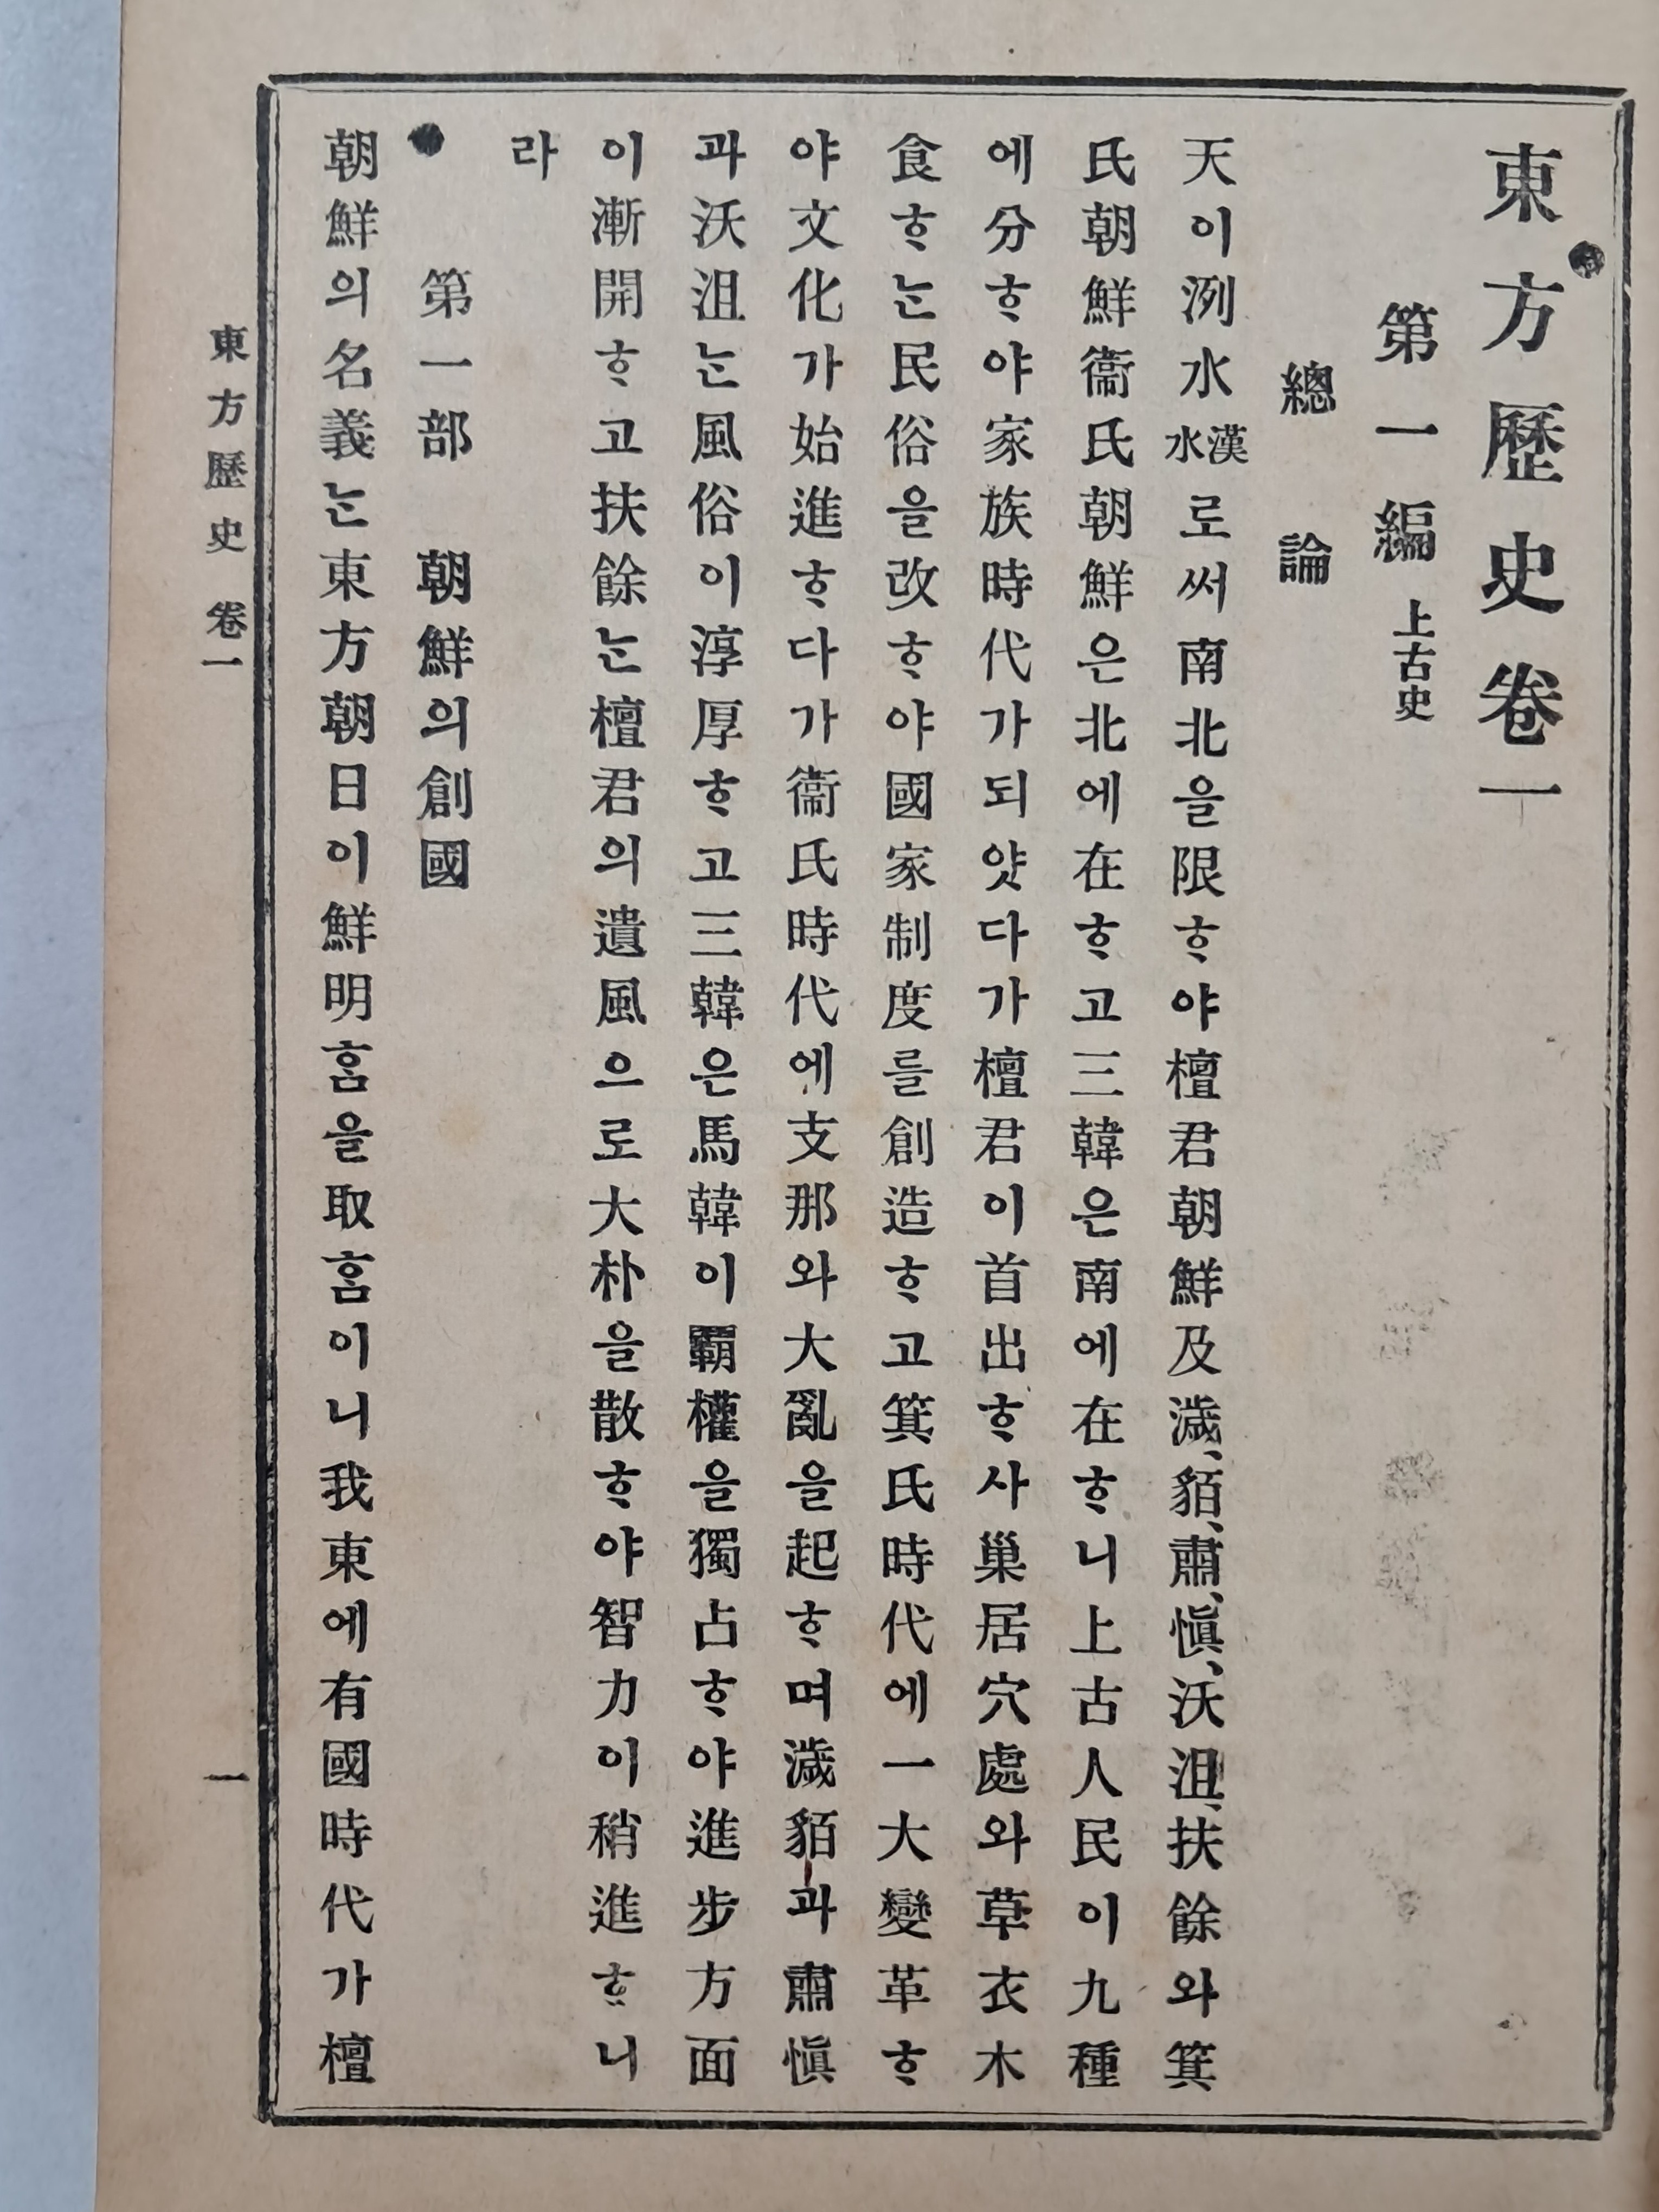 東方歷史卷一
第一編 上古史
總論
天이洌水漢水로써南北을限ᄒᆞ야檀君朝鮮及濊、貊、肅、愼、沃沮、扶餘와箕
氏朝鮮衞氏朝鮮은北에在ᄒᆞ고三韓은南에在ᄒᆞ니上古人民이九種
에分ᄒᆞ야家族時代가되얏다가檀君이首出ᄒᆞ사巢居穴處와草衣木
食ᄒᆞᄂᆞᆫ民俗을改ᄒᆞ야國家制度를創造ᄒᆞ고箕氏時代에一大變革ᄒᆞ
야文化가始進ᄒᆞ다가衞氏時代에支那와大亂을起ᄒᆞ며濊貊과肅愼
과沃沮ᄂᆞᆫ風俗이淳厚ᄒᆞ고三韓은馬韓이覇權을獨占ᄒᆞ야進步方面
이漸開ᄒᆞ고扶餘ᄂᆞᆫ檀君의遺風으로大朴을散ᄒᆞ야智力이稍進ᄒᆞ니
라
● 第一部 朝鮮의創國
朝鮮의名義ᄂᆞᆫ東方朝日이鮮明ᄒᆞᆷ을取ᄒᆞᆷ이니我東에有國時代가檀
東方歷史 卷一
一